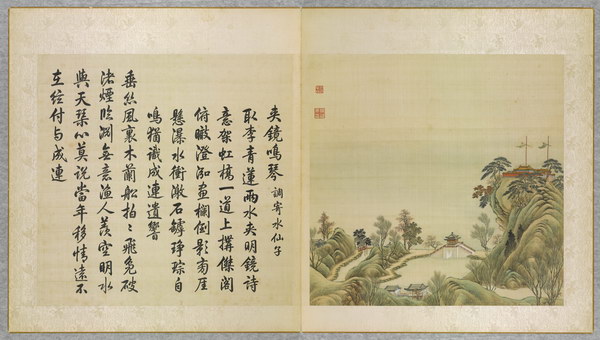 夾鏡鳴琴 調寄水仙子
取李青蓮兩水夾明鏡詩
意架虹橋一道上構傑閣
俯瞰澄泓畫欄倒影旁厓
懸瀑水衝激石罅琤琮自
鳴猶識成連遺響
垂絲風裏木蘭船拍〻飛鳧破
渚煙臨淵無意漁人羨空明水
與天琴心莫說當年移情遠不
在絃付與成連